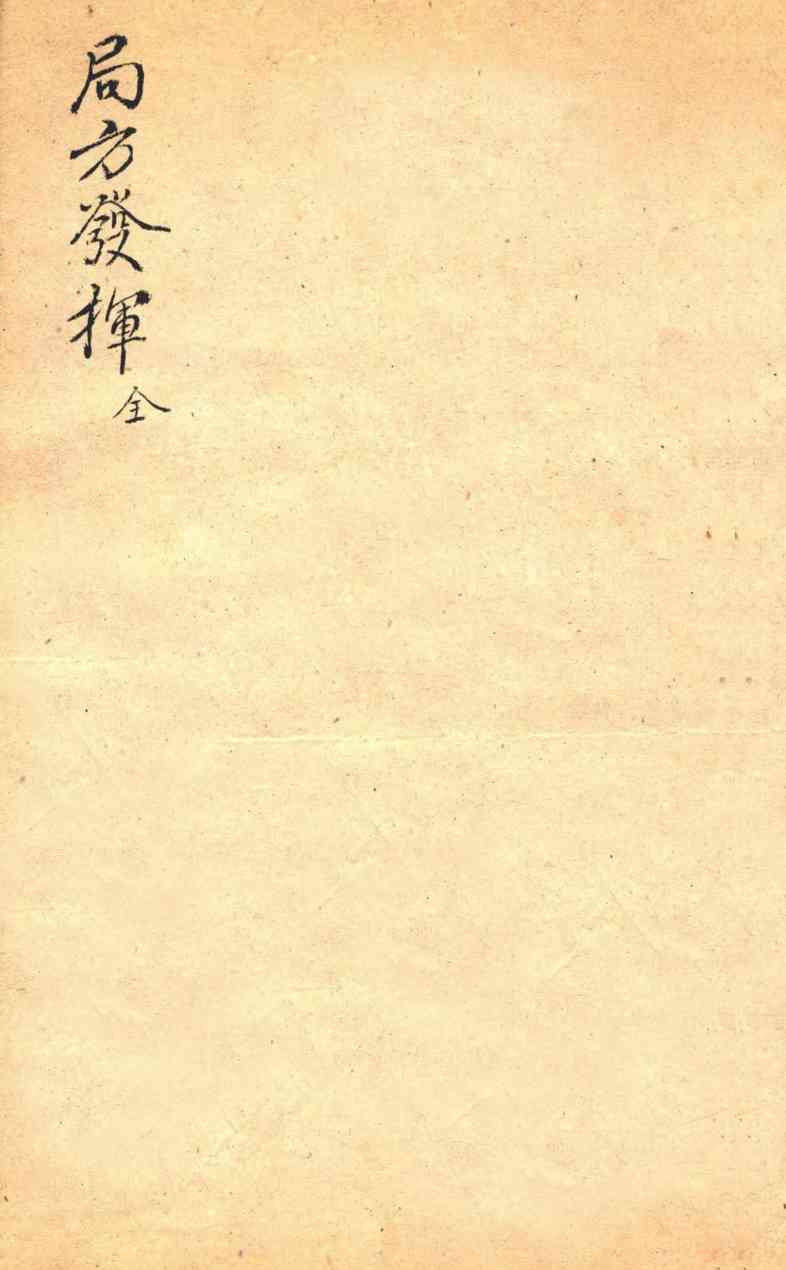 局方發揮全